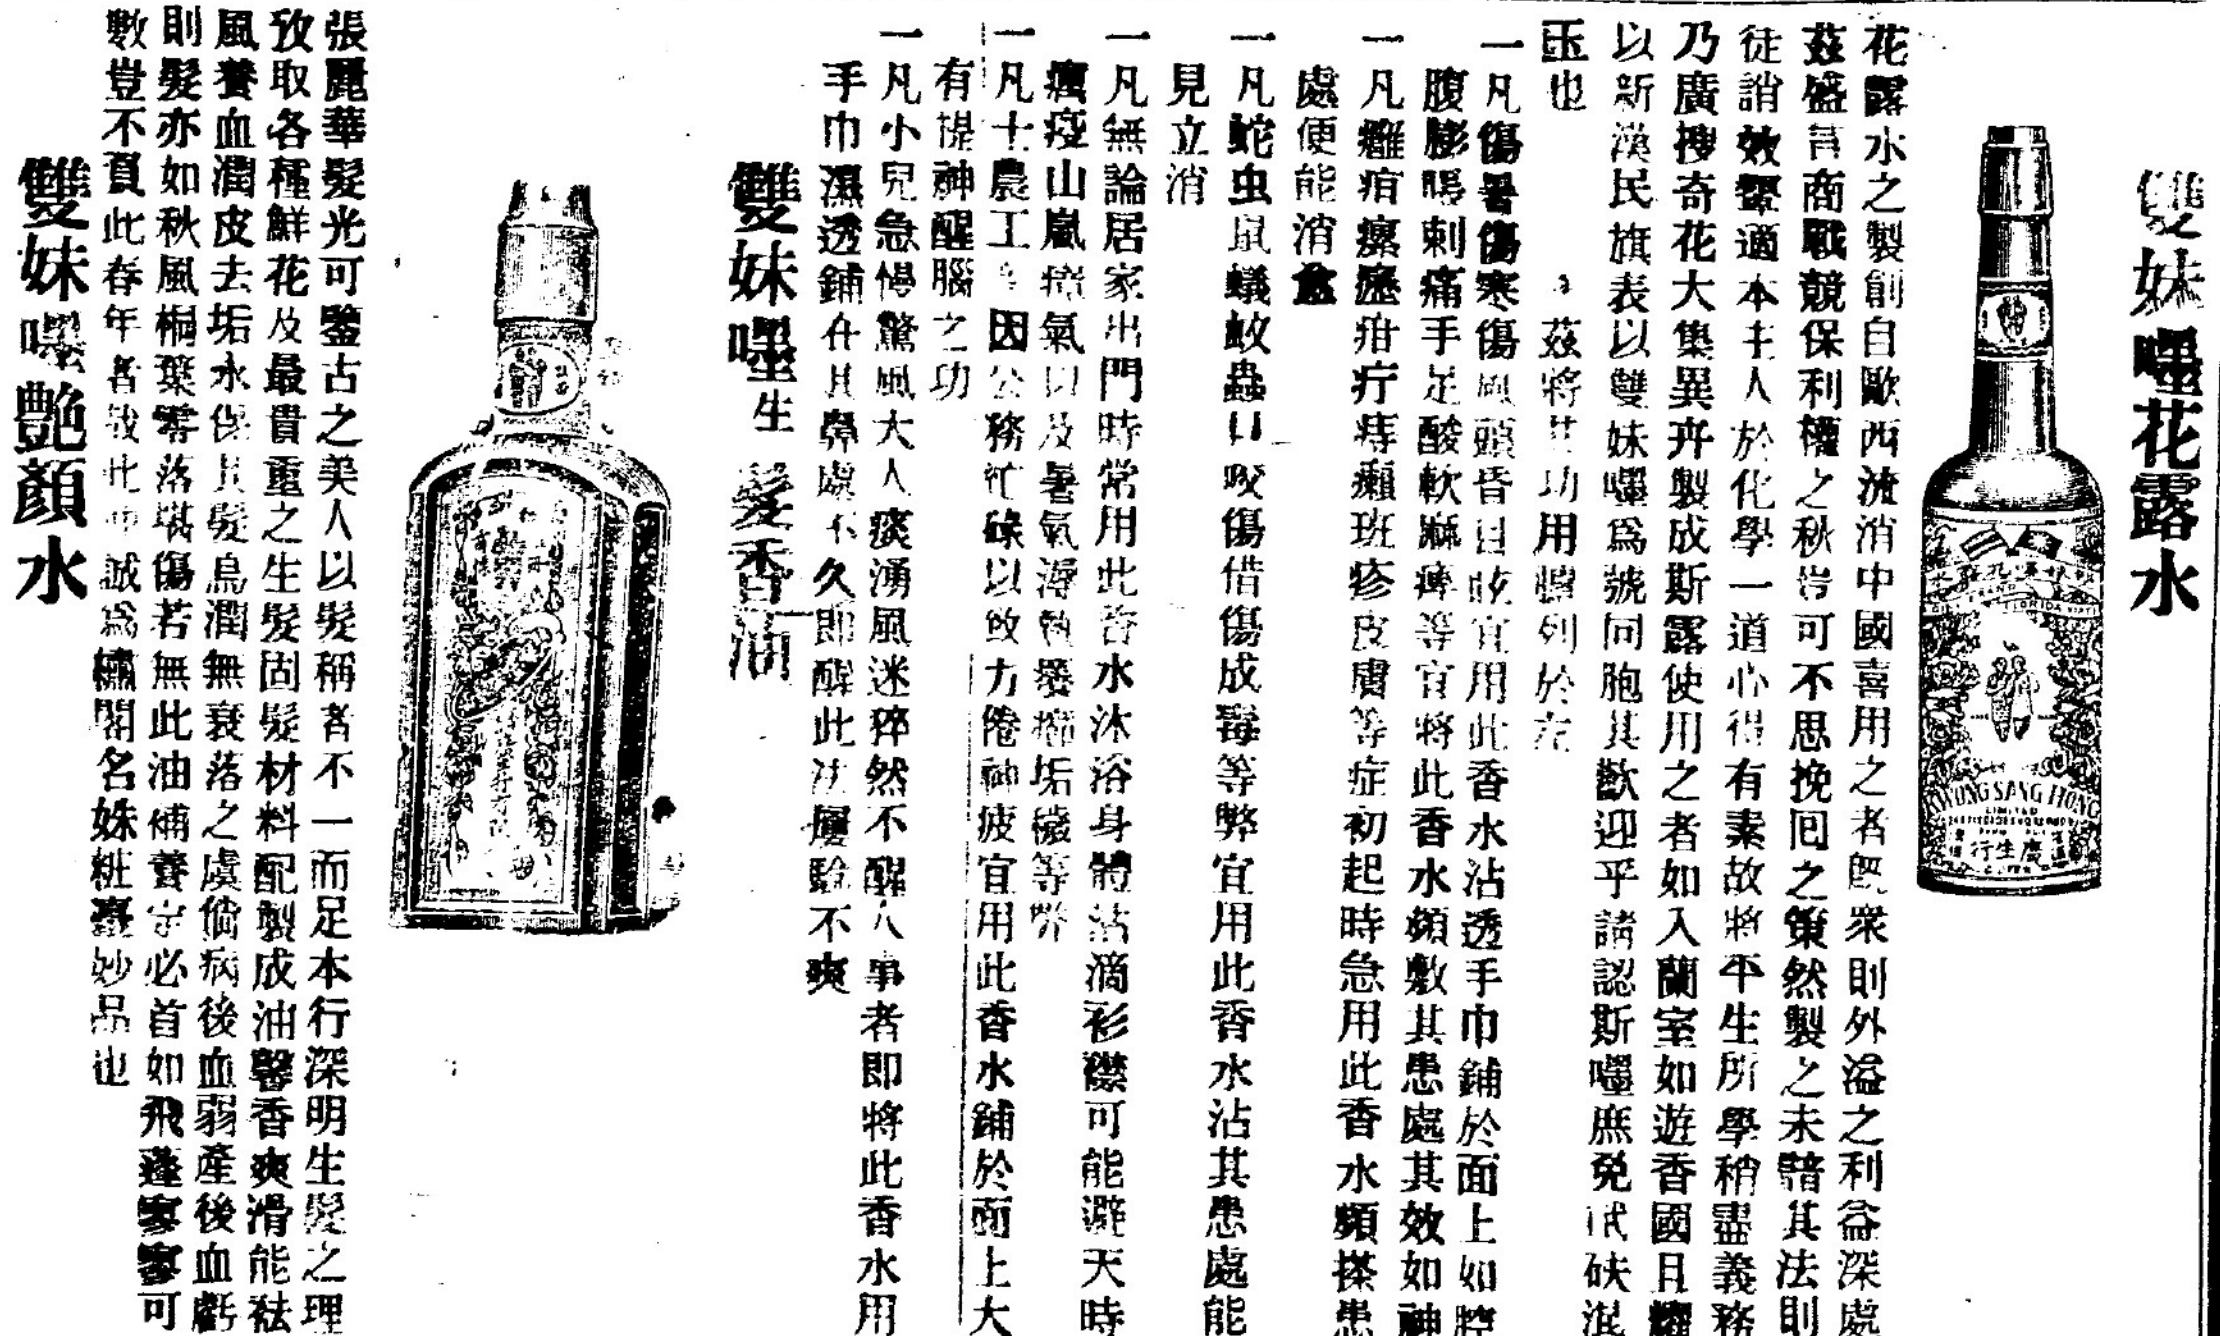 雙妹嚜花露水
KWONG SANG HONG
LIMITED
FLORIDA
行生廣
花露水之製創自歐西流消中國喜用之者既衆則外溢之利益深處
茲盛言商戰競保利權之秋豈可不思挽囘之策然製之未諳其法則
徒誚效顰適本主人於化學一道心得有素故將平生所學稍盡義務
乃廣搜奇花大集異卉製成斯露使用之者如入蘭室如遊香國且
以新漢民旗表以雙妹嚜爲號同胞其歡迎乎請認斯嚜庶免碔砆混
玉也
茲將其功用臚列於左
一凡傷暑傷寒傷風頭昏目眩宜用此香水沾透手巾鋪於面上如
腹膨腸刺痛手足酸軟麻痺等宜將此香水頻敷其患處其效如神
一凡癰疽瘰癧疳疔痔癩班疹皮膚等症初起時急用此香水頻搽患
處便能消
一凡蛇虫鼠蟻蚊蟲咬傷借傷成毒等弊宜用此香水沾其患處能
見立消
一凡無論居家出門時常用此香水沐浴身體沾滴衫襟可能避天時
瘟疫山嵐瘴氣以及暑氣垢穢等弊
一凡士農工因公務忙碌以致力倦神疲宜用此香水鋪於面上大
有提神醒腦之功
一凡小兒急慢驚風大人痰湧風迷猝然不醒人事者即將此香水用
手巾濕透鋪在其鼻處不久即醒此法屢驗不爽
雙妹嚜生髮香油
張麗華髮光可鑒古之美人以髮稱者不一而足本行深明生髮之理
攷取各種鮮花及最貴重之生髮固髮材料配製成油馨香爽滑能祛
風養血潤皮去垢永保其髮烏潤無衰落之虞倘病後血弱產後血虧
則髮亦如秋風桐葉零落堪傷若無此油補養定必首如飛蓬寥寥可
數豈不負此春年者哉此油誠爲閨名姝粧臺妙品也
雙妹嚜艶顏水